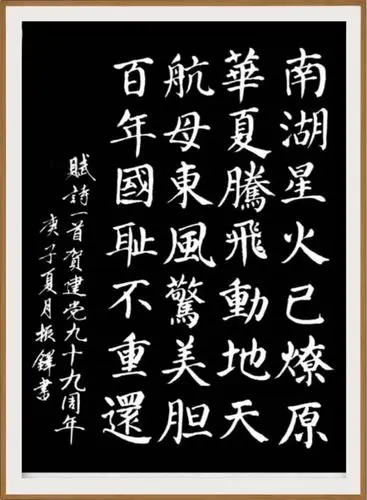 南湖星火已燎原
華夏騰飛動地天
航母東風驚美胆
百年國耻不重還
賦詩一首賀建党九十九周年
庚子夏月振鐸書